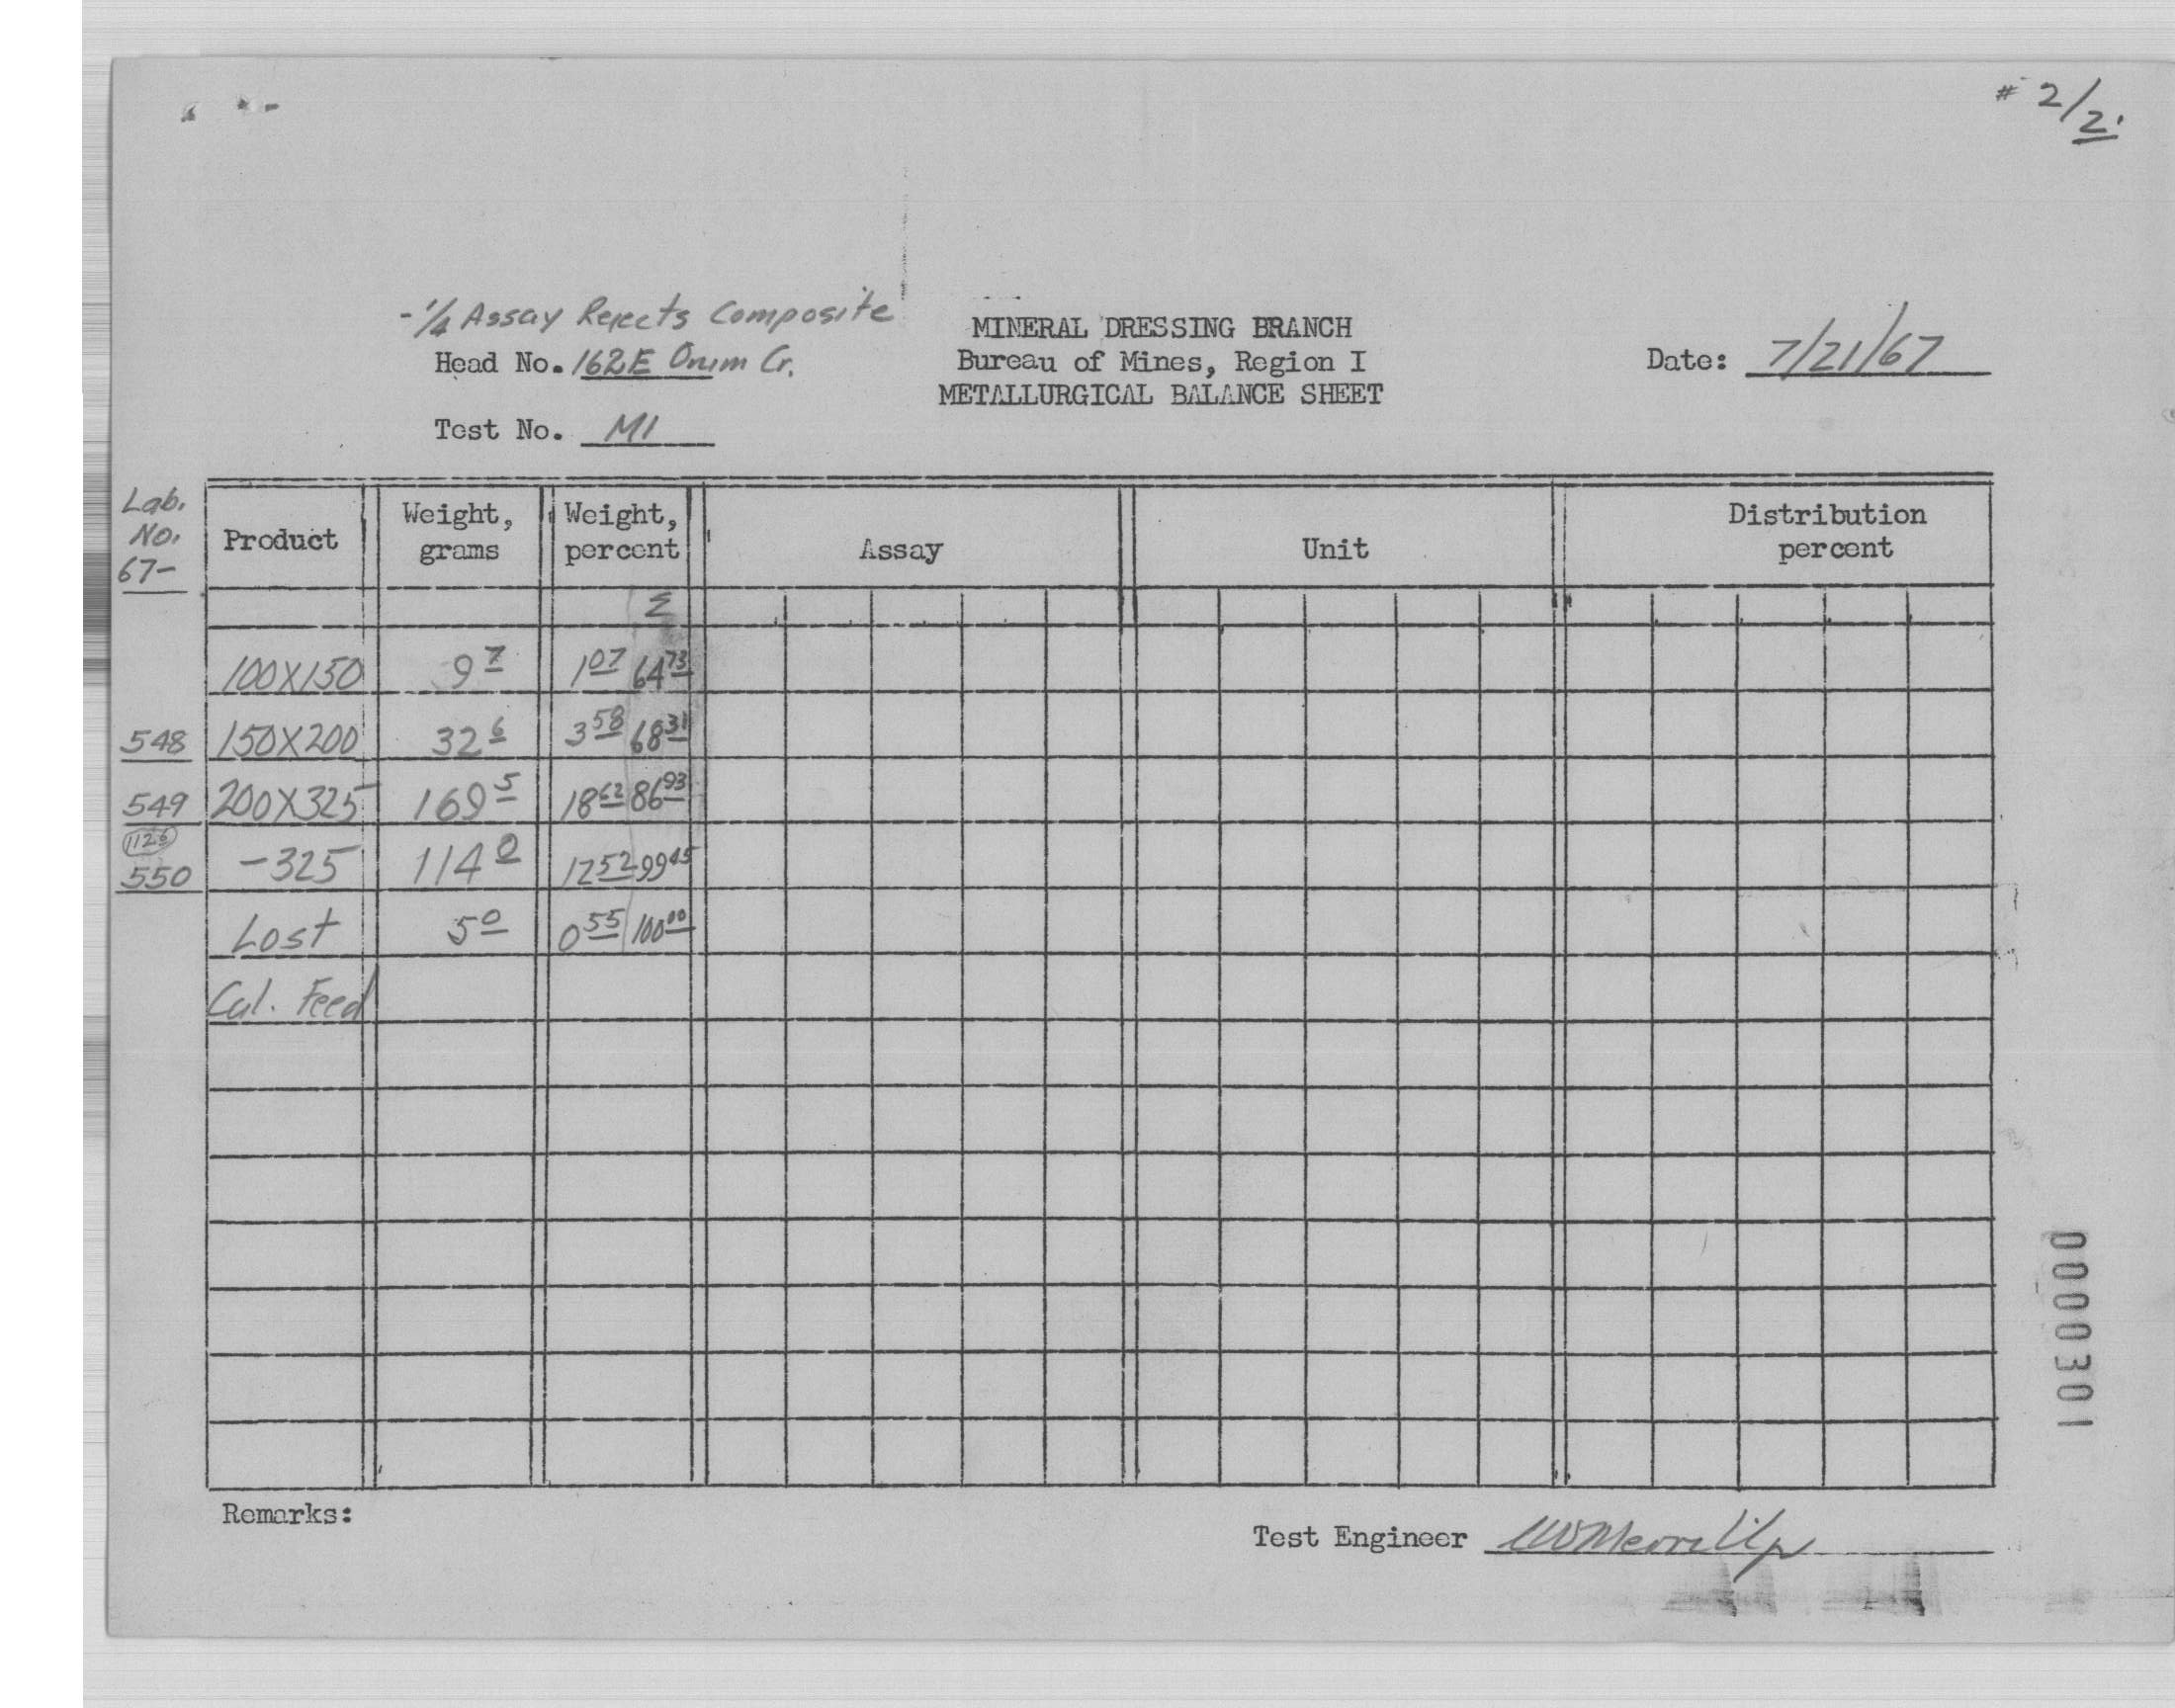 # 2/2.
-1/4 Assay Rejects Composite
MINERAL DRESSING BRANCH
Head No. 162E Drum Cr.
Bureau of Mines, Region I
Date: 7/21/67
METALLURGICAL BALANCE SHEET
Test No. M1
Lab. No. 67-
Product
Weight, grams
Weight, percent
Assay
Unit
Distribution percent
Σ
100X150 9 7 1 07 64 73
548 150X200 32 6 3 58 68 31
549 200X325 169 5 18 62 86 93
1126
550 -325 114 0 12 52 99 45
Lost 5 0 0 55 100 00
Cal. Feed
0000301
Remarks:
Test Engineer